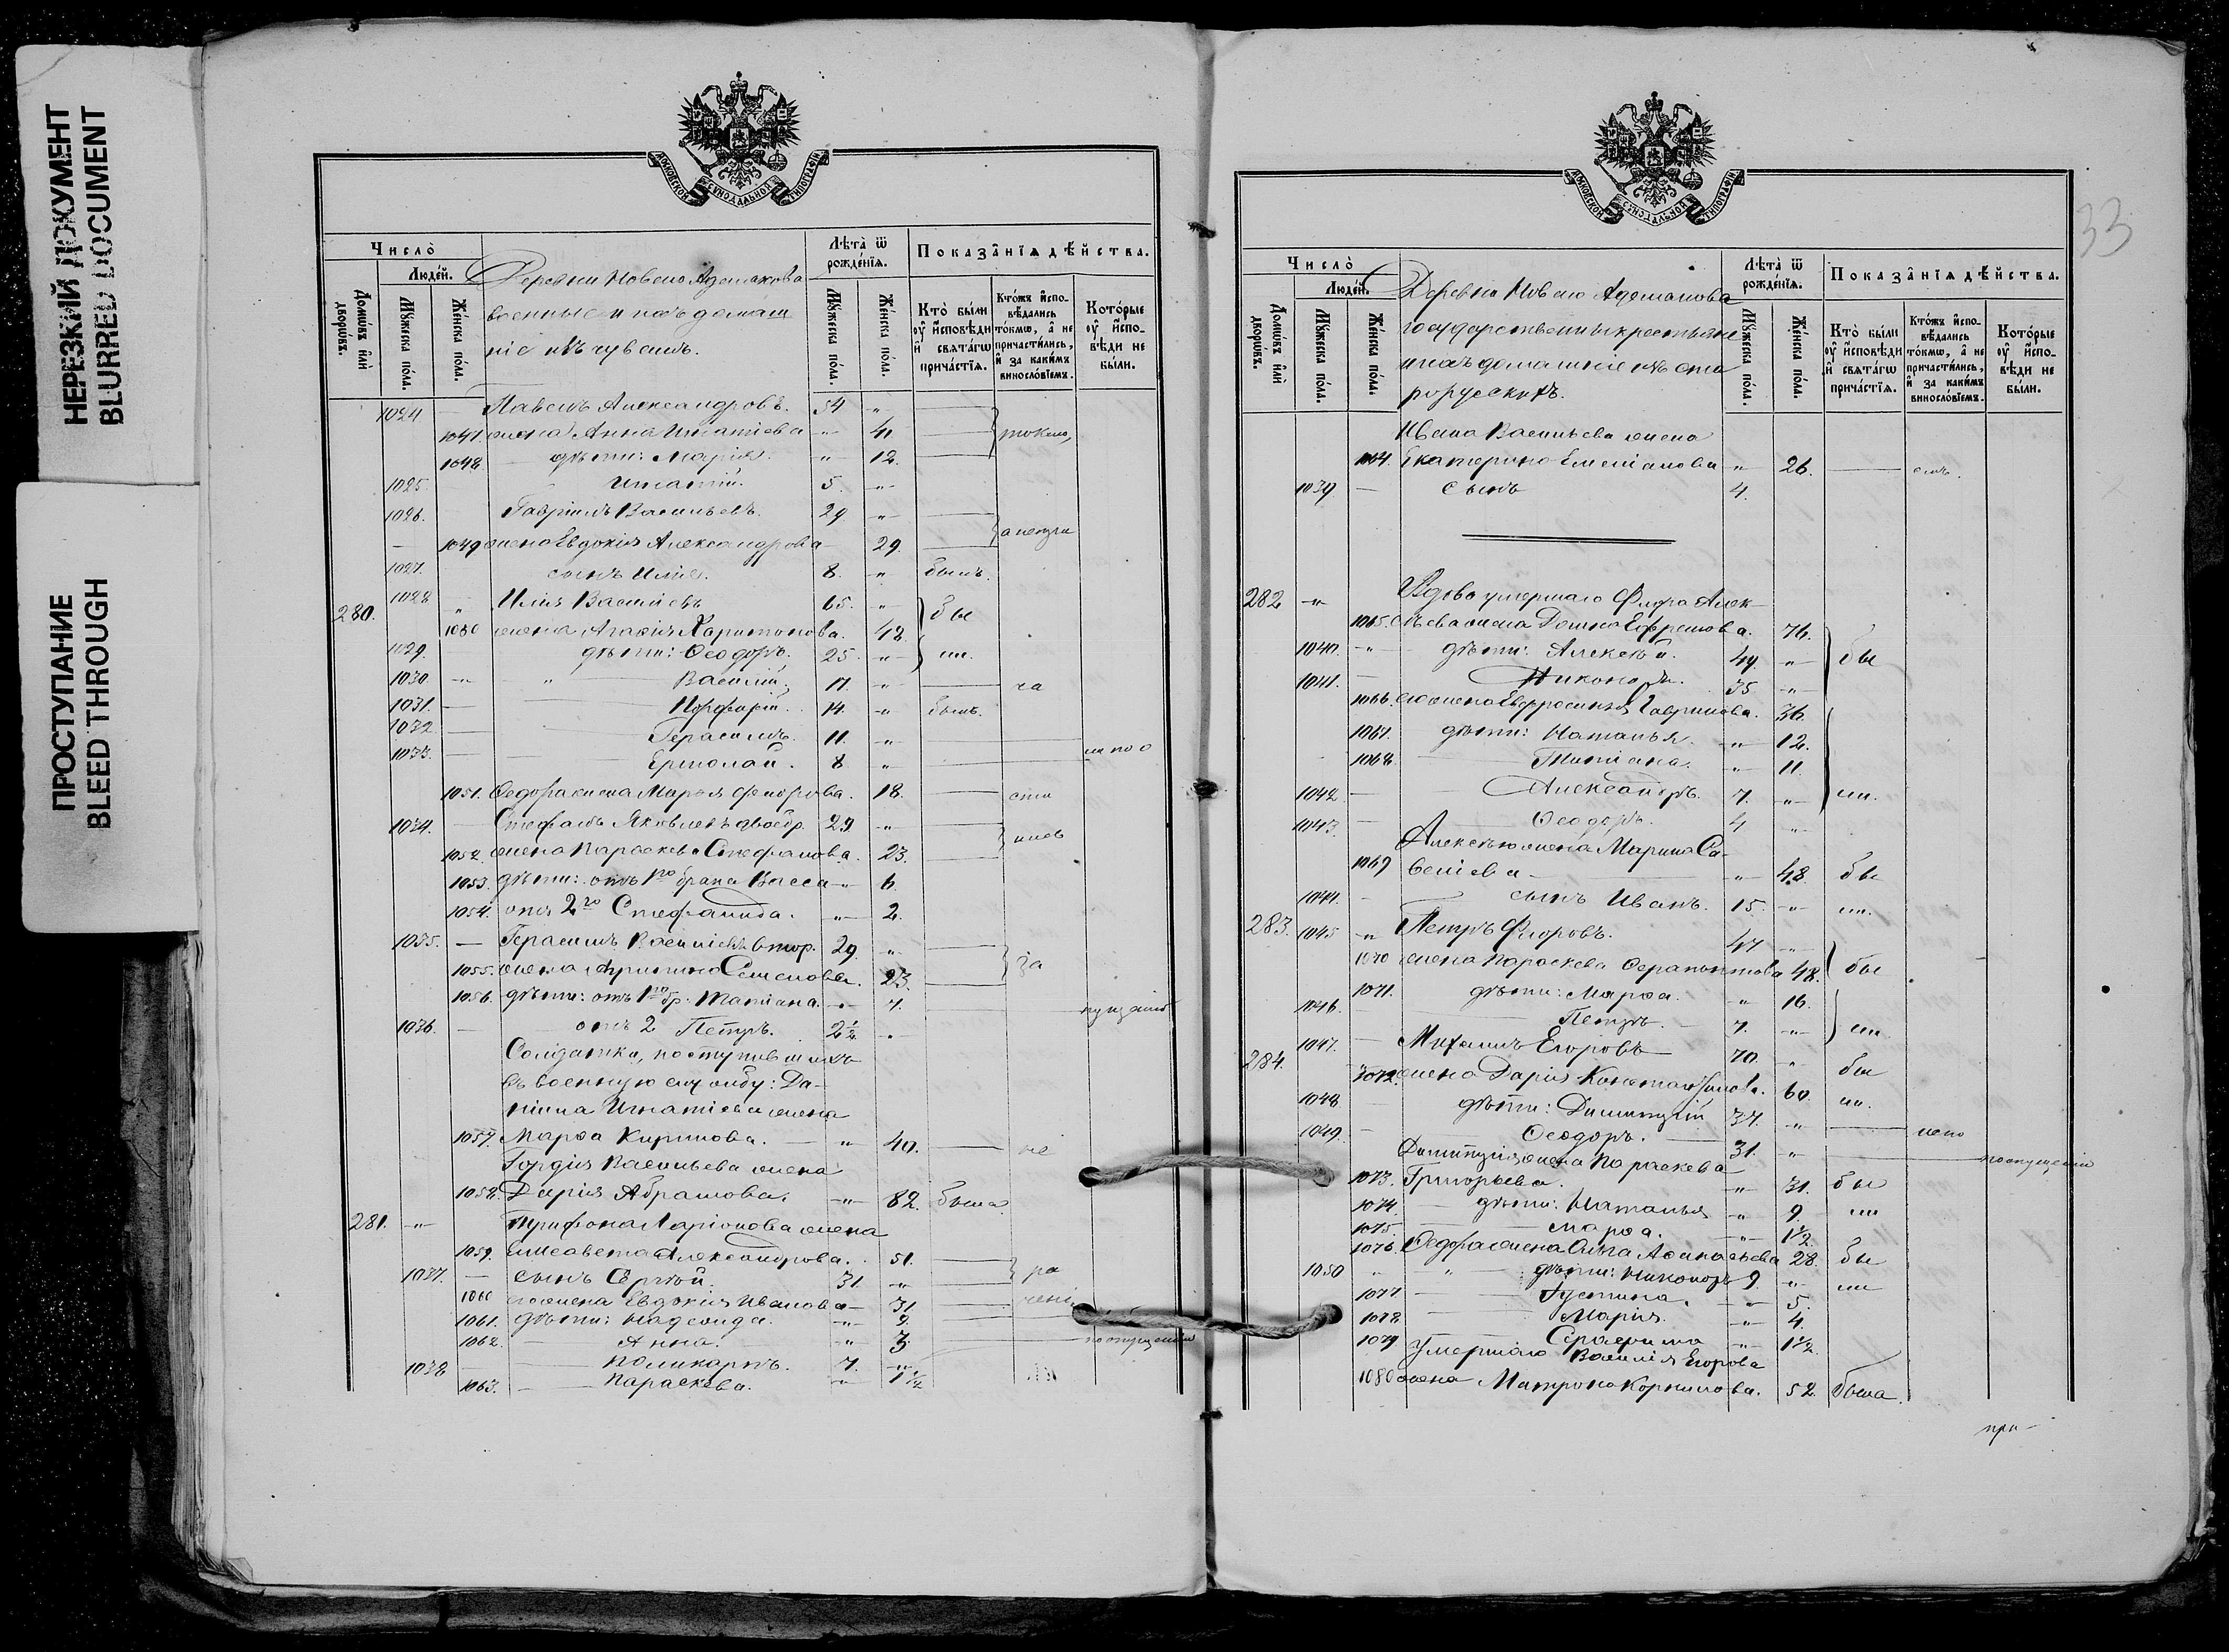 НЕРЕЗКИЙ ДОКУМЕНТ
BLURRED DOCUMENT
ПРОСТУПАНИЕ
BLEED THROUGH
МОСКОВСКОЙ СѴНОДАЛЬНОЙ ТИПОГРАФІИ
Число̀
Люде́й.
Домѡ́въ и҆лѝ дворѡ́въ.
Мꙋ́жеска по́ла.
Же́нска по́ла.
Деревни Новаго Адамакова
военные и ихъ домаш
ніе изъ чувашъ.
Лѣта̀ ѿ рожде́нїѧ.
Мꙋ́жеска по́ла.
Же́нска по́ла.
Показа̑нїѧ дѣ́йства.
Кто̀ бы́ли оу҆ и҆сповѣ́ди и҆ свѧта́гѡ прича́стїѧ.
Кто́жъ и҆сповѣ́дались то́кмѡ, а҆ не причасти́лись, и҆ за каки́мъ винословїемъ.
Кото́рые оу҆ и҆сповѣ́ди не бы́ли.
1024. Павелъ Александровъ. 54 "
1047. жена Анна Игнатіева " 41 токмо,
1048 дѣти: Марія. " 12.
1025. Игнатій. 5. "
1026. Гавріилъ Васильевъ. 29 "
1049 жена Евдокія Александрова 29. а не при
1027. сынъ Илія. 8. " былъ.
280. 1028 " Илія Василіевъ 65. " бы
1050 жена Агафія Харитонова. 48.
1029. дѣти: Ѳеодоръ. 25. " ли.
1030 " Василій, 17. " ча
1031. Порфирій. 14. " былъ.
1032. Герасимъ. 11. "
1033. Ермолай. 8 " ли по о
1051. Ѳедора жена Марья Ѳедорова. 18. сти
1034. Стефанъ Яковлевъ двоебр. 29. " лись
1052. жена Параскева Стефанова. 23.
1053. дѣти: отъ 1го брака Васса " 6.
1054. отъ 2го Стефанида. " 2.
1035. Герасимъ Василіевъ втор. 29. " за
1055. жена Агрипина Семенова. 23.
1056. дѣти: отъ 1го бр. Татіана. " 7. пущенію
1036. отъ 2 Петръ. 2½ "
Солдатки, поступившихъ
въ военную службу: Да-
ніила Игнатіева жена
1057. Марѳа Кирилова. " 40. не
Гордія Васильева жена
1058. Дарія Абрамова. " 82. была.
281. " Трифона Ларіонова жена
1059. Елисавета Александрова. 51. ра
1037. сынъ Сергѣй. 31 "
1060 его жена Евдокія Иванова 31. чені
1061. дѣти: Надежда. " 9.
1062. Анна. " 3. по опущенію
1038 Поликарпъ. 7. "
1063. Параскева. " 1½
33
МОСКОВСКОЙ СѴНОДАЛЬНОЙ ТИПОГРАФІИ
Число̀
Люде́й.
Домѡ́въ и҆лѝ дворѡ́въ.
Мꙋ́жеска по́ла.
Же́нска по́ла.
Деревни Новаго Адамакова
государственные крестьяне
и ихъ домашніе изъ ста
рорусскихъ.
Лѣта̀ ѿ рожде́нїѧ.
Мꙋ́жеска по́ла.
Же́нска по́ла.
Показа̑нїѧ дѣ́йства.
Кто̀ бы́ли оу҆ и҆сповѣ́ди и҆ свѧта́гѡ прича́стїѧ.
Кто́жъ и҆сповѣ́дались то́кмѡ, а҆ не причасти́лись, и҆ за каки́мъ винословїемъ.
Кото́рые оу҆ и҆сповѣ́ди не бы́ли.
Ивана Васильева жена
1064. Екатерина Емеліанова " 26.
1039. сынъ 4.
282 " Вдова умершаго Флора Алек-
1065. сѣева жена Домна Ефремова. 76.
1040. " дѣти: Алексѣй. 49. " бы
1041. Никоноръ. 35 "
1066. его жена Евфросинья Гаврилова. 36.
1067. дѣти: Наталья. " 12.
1068. Татіана. " 11.
1042 Александръ. 7. " ли.
1043. Ѳеодоръ. 4 "
Алексѣя жена Марина Са-
1069 веліева " 48. бы
1044. сынъ Иванъ. 15. " ли.
283. 1045 " Петръ Флоровъ. 47 "
1070 жена Параскева Ѳерапонтова 48. бы
1071. дѣти: Марѳа. " 16.
1046. Петръ. 7. " ли.
284. 1047. Михаилъ Егоровъ 70. " бы
1072. жена Дарія Константинова. 60. ли.
1048 дѣти: Димитрій 37. "
1049. Ѳеодоръ. 31. "
Димитрія жена Параскева по опущенію
1073. Григорьева. " 31. бы
1074. дѣти: Наталья " 9. ли
1075. Марѳа. " 1½
1076. Ѳедора жена Анна Аѳанасьева 28. бы
1050 " дѣти: Никоноръ 9. " ли
1077. Іустина. " 5.
1078. Марія. " 4.
1079 Серафима " 1½
умершаго Василія Егорова
1080 жена Матрона Корнилова. 52. была.
при-